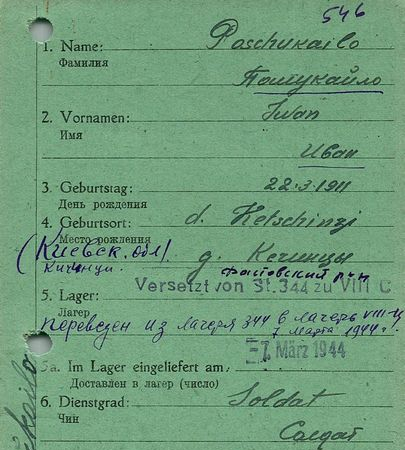 546
1. Name: Poschukailo
Фамилия
Пошукайло
2. Vornamen: Iwan
Имя
Иван
3. Geburtstag: 22.3.1911
День рождения
4. Geburtsort: d. Ketschinzi
Место рождения
(Киевск. обл.) д. Кечинцы
Кичинци. Фастовский р-н
Versetzt von St. 344 zu VIII C
5. Lager:
Лагерь
переведен из лагеря 344 в лагерь VIII-Ц
7 марта 1944 г.
-7. März 1944
5a. Im Lager eingeliefert am:
Доставлен в лагерь (число)
6. Dienstgrad: Soldat
Чин
Солдат